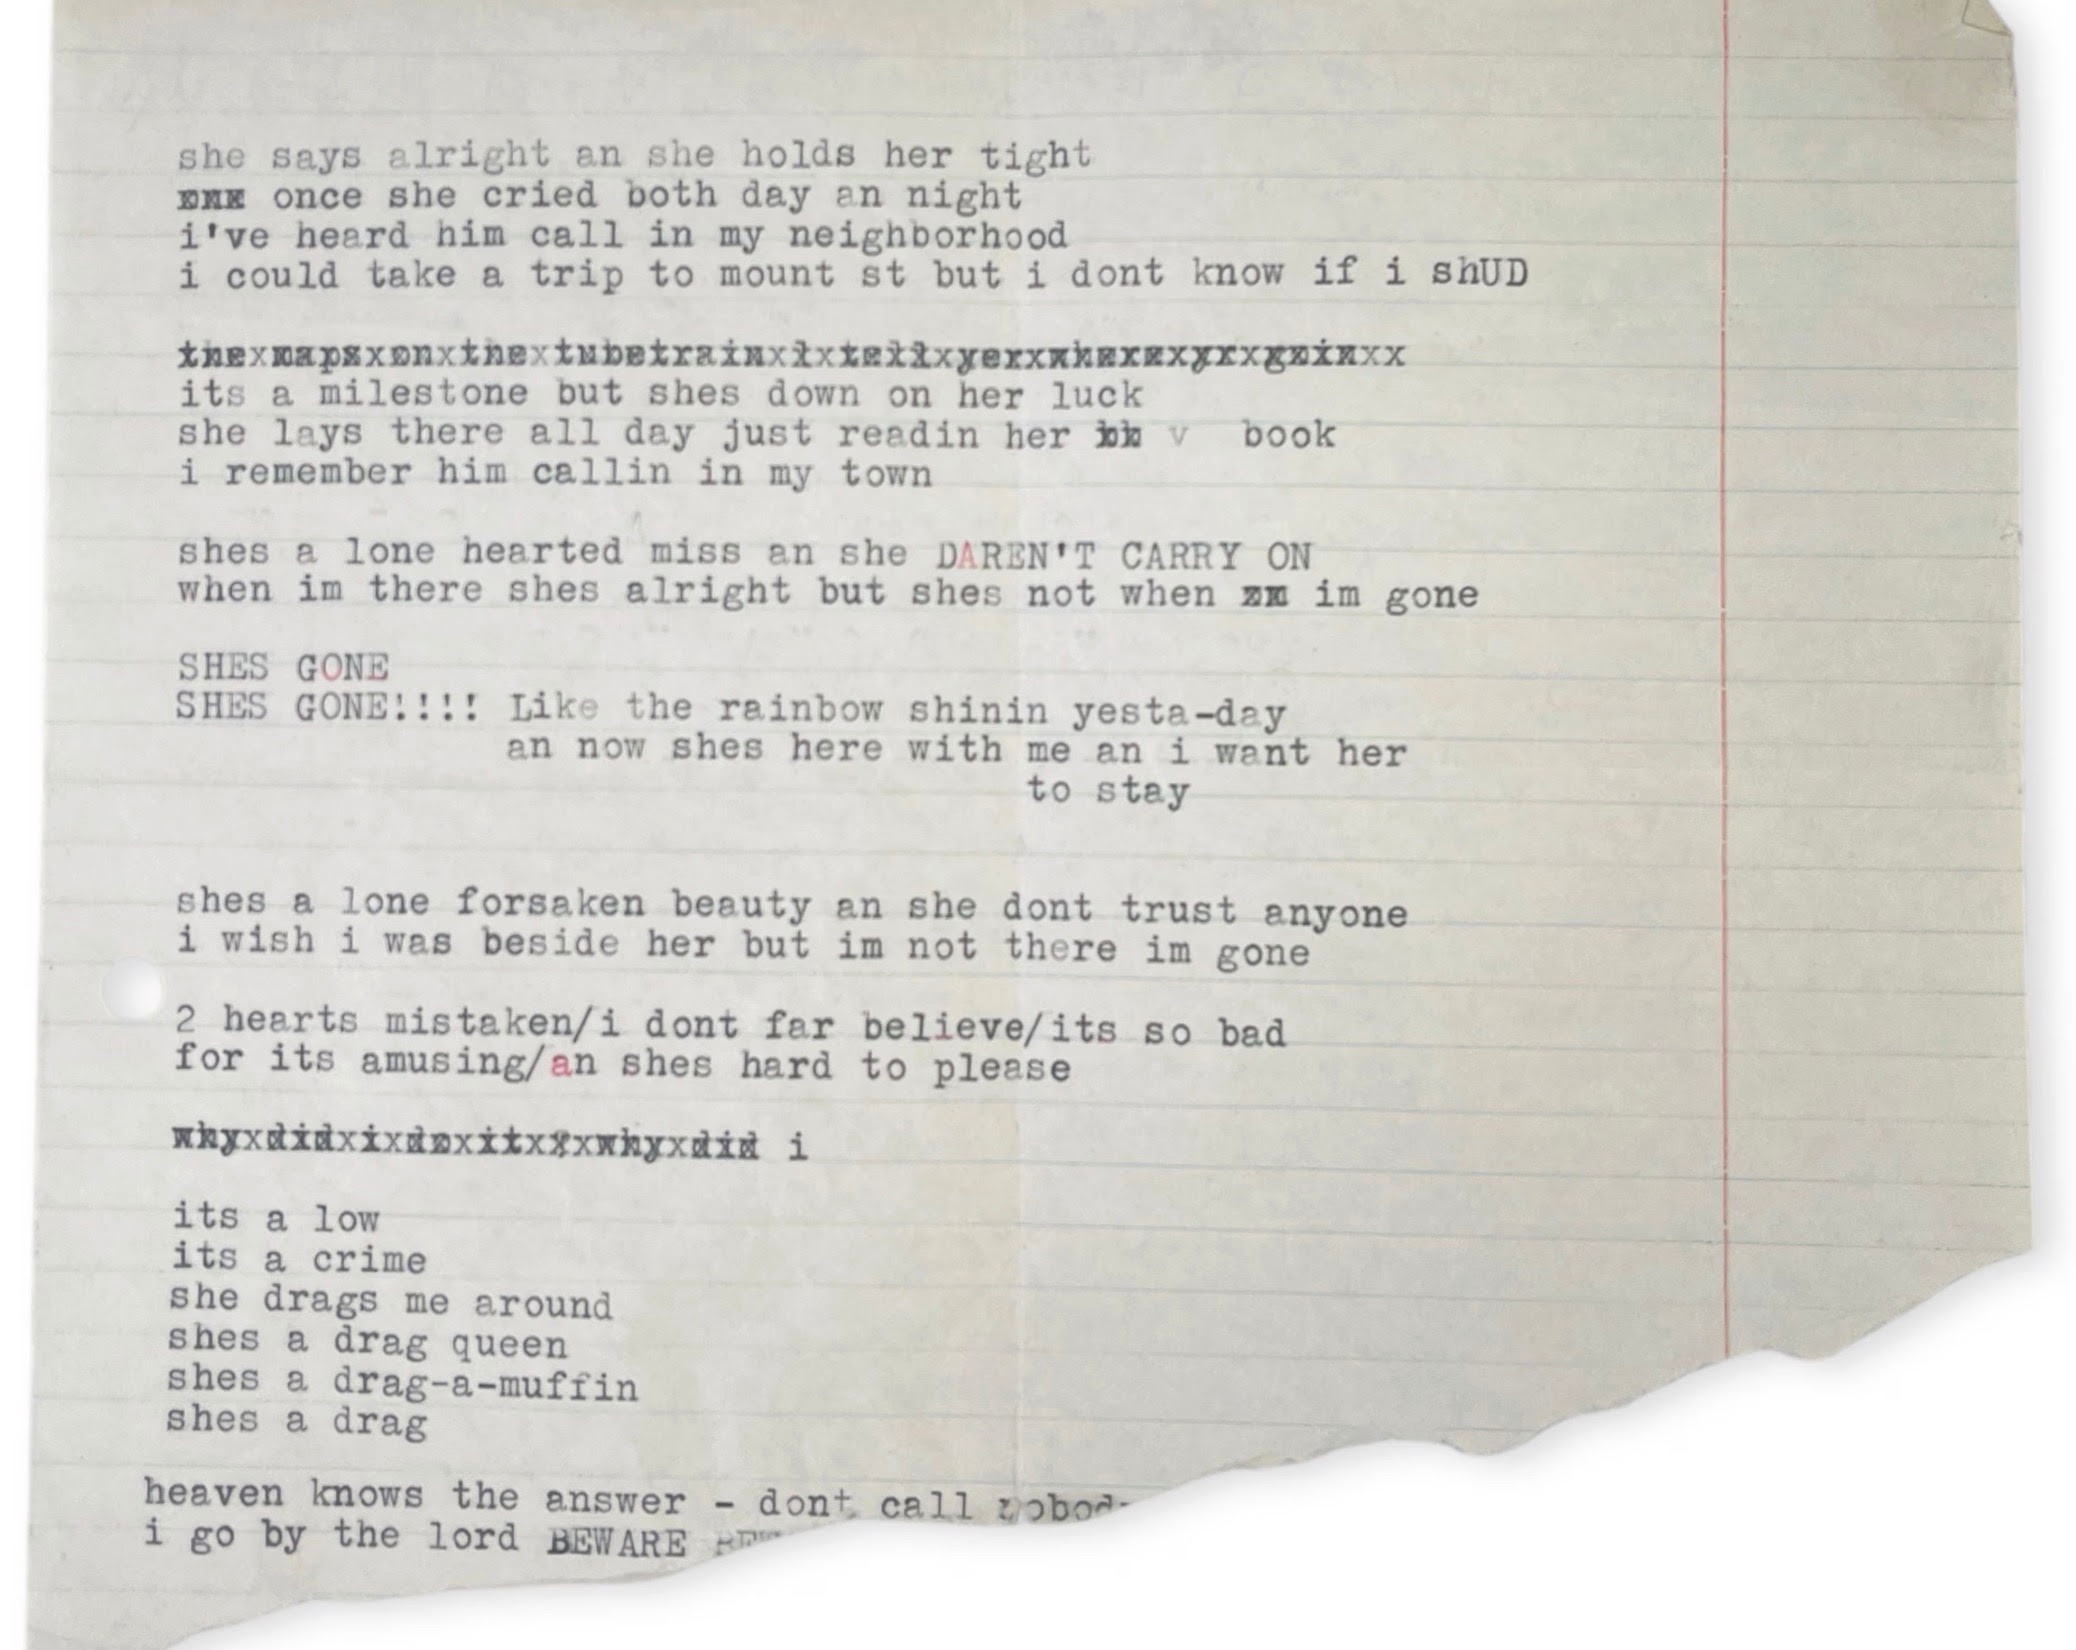 she says alright an she holds her tight
once she cried both day an night
i've heard him call in my neighborhood
i could take a trip to mount st but i dont know if i shUD
its a milestone but shes down on her luck
she lays there all day just readin her v book
i remember him callin in my town
shes a lone hearted miss an she DAREN'T CARRY ON
when im there shes alright but shes not when im gone
SHES GONE
SHES GONE!!!! Like the rainbow shinin yesta-day
an now shes here with me an i want her
to stay
shes a lone forsaken beauty an she dont trust anyone
i wish i was beside her but im not there im gone
2 hearts mistaken/i dont far believe/its so bad
for its amusing/an shes hard to please
i
its a low
its a crime
she drags me around
shes a drag queen
shes a drag-a-muffin
shes a drag
heaven knows the answer - dont call
i go by the lord BEWARE